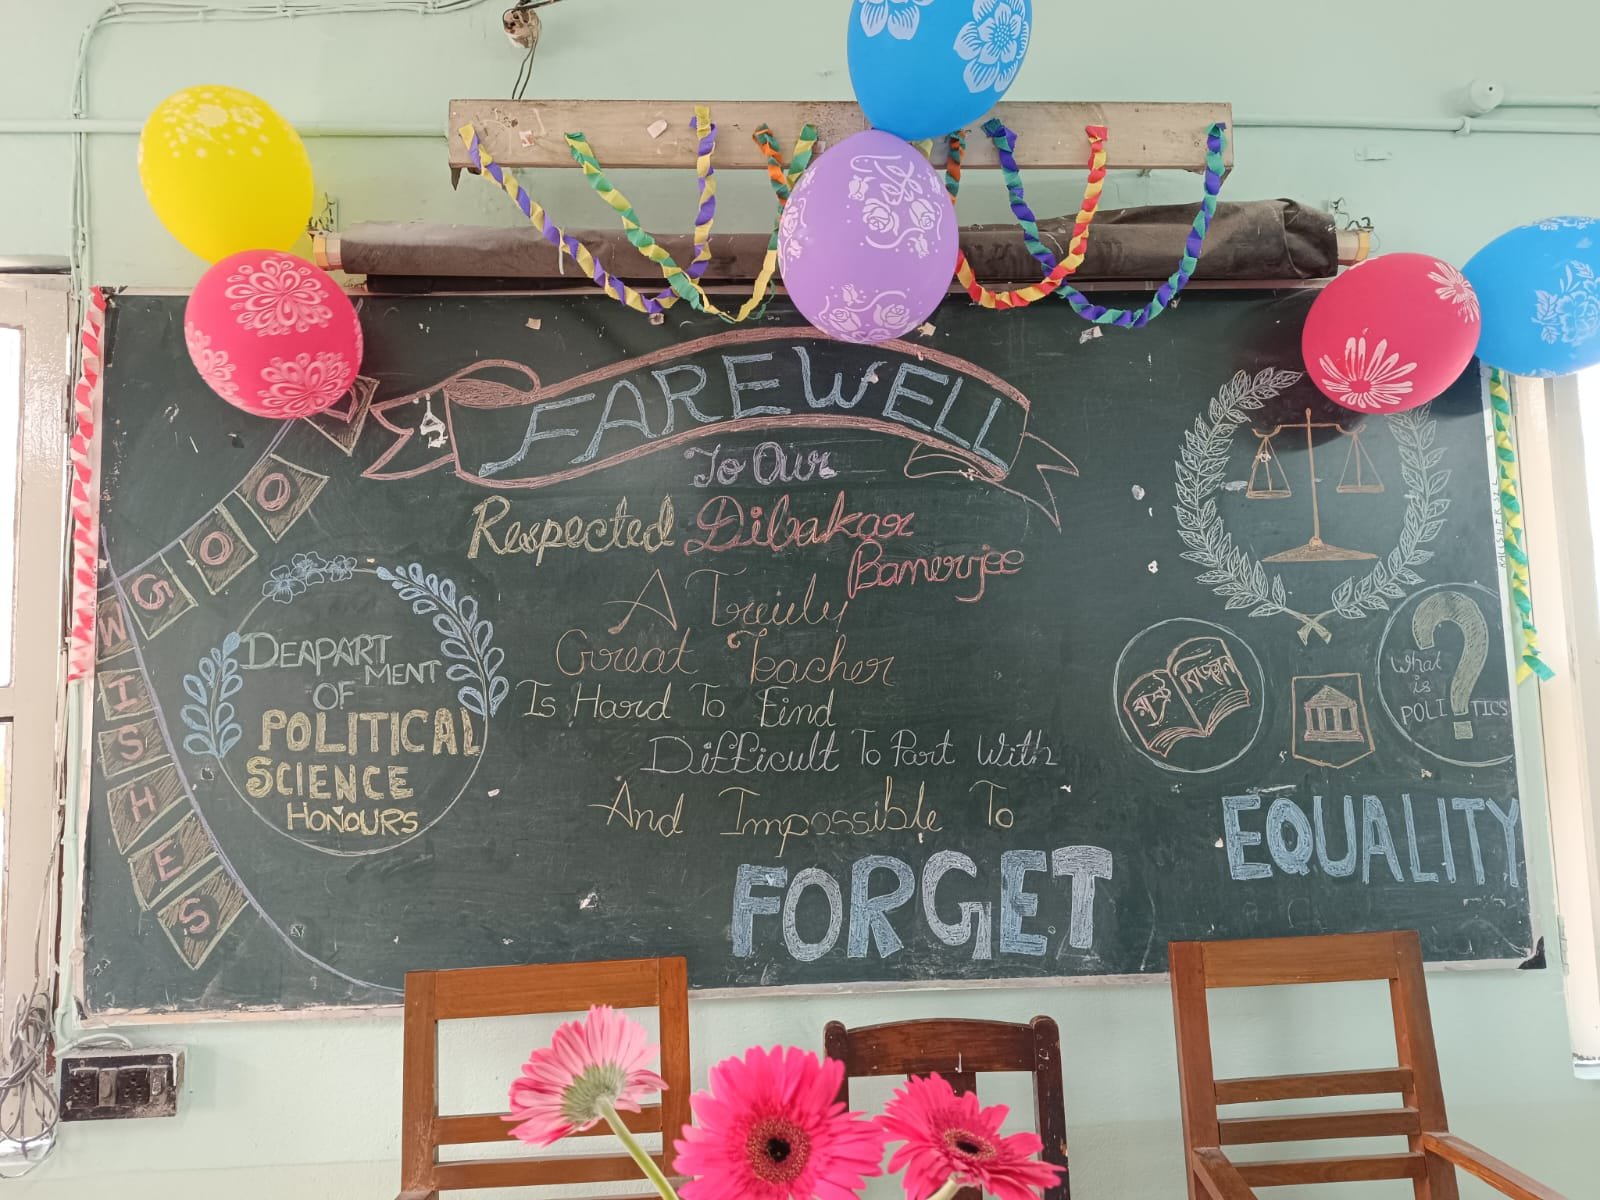 FAREWELL
To Our
Respected Dibakar
Banerjee
A Truly
Great Teacher
Is Hard To Find
Difficult To Part With
And Impossible To
FORGET
GOOD
WISHES
DEAPART
MENT
OF
POLITICAL
SCIENCE
HONOURS
What
is
POLITICS
?
EQUALITY